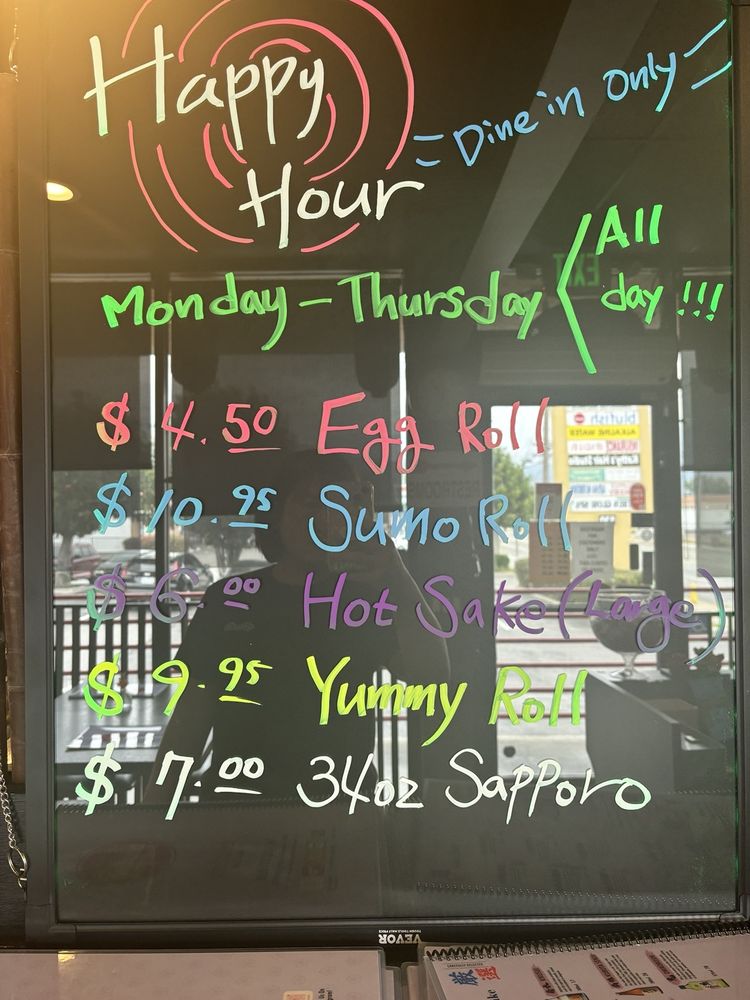 Happy
Hour
= Dine in Only =
Monday - Thursday
All
day !!!
$ 4.50 Egg Roll
$ 10.95 Sumo Roll
$ 6.00 Hot Sake (Large)
$ 9.95 Yummy Roll
$ 7.00 34oz Sapporo
EXIT
RESTROOM
blufish
ALKALINE WATER
VEVOR
厳選